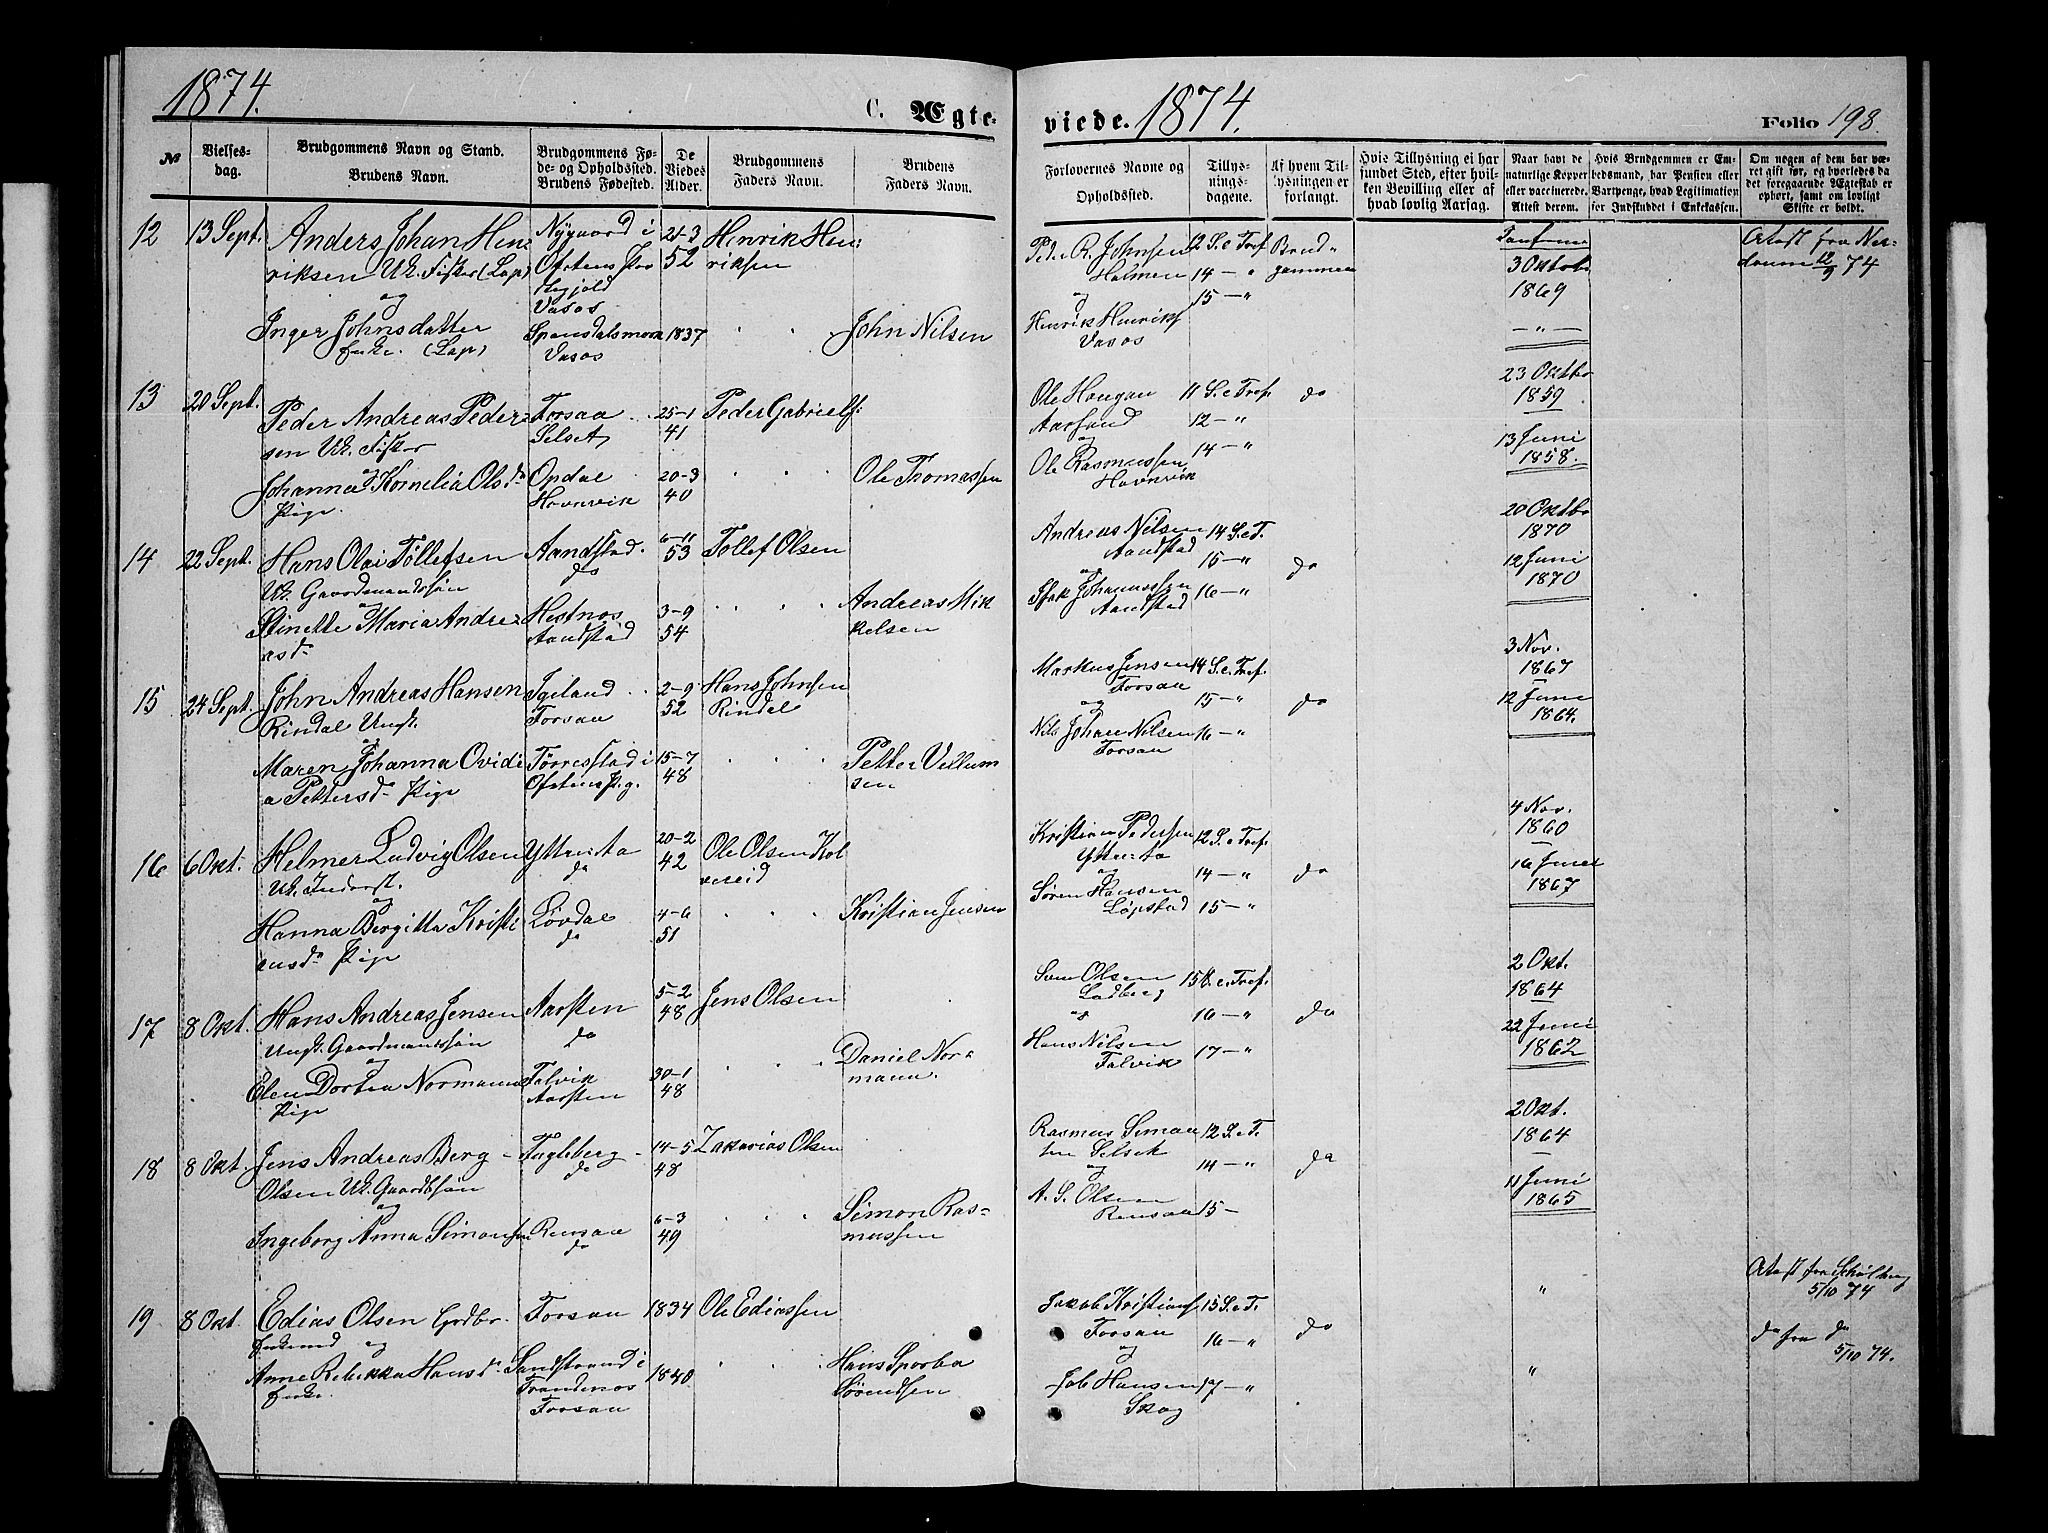 1874.
C. Ægte-
viede. 1874.
Folio 198.
No
Vielses-
dag.
Brudgommens Navn og Stand.
Brudens Navn.
Brudgommens Fø-
de- og Opholdssted.
Brudens Fødested.
De
Viedes
Alder.
Brudgommens
Faders Navn.
Brudens
Faders Navn.
Forlovernes Navne og
Opholdssted.
Tillys-
nings-
dagene.
Af hvem Til-
lysningen er
forlangt.
Hvis Tillysning ei har
fundet Sted, efter hvil-
ken Bevilling eller af
hvad lovlig Aarsag.
Naar havt de
naturlige Kopper
eller vaccinerede.
Attest derom.
Hvis Brudgommen er Em-
bedsmand, har Pension eller
Vartpenge, hvad Legitimation
for Indskuddet i Enkekassen.
Om nogen af dem har væ-
ret gift før, og hvorledes da
det foregaaende Ægteskab er
ophørt, samt om lovligt
Skifte er holdt.
12 13 Sept.
Anders Johan Hen-
riksen Uk. Fisker (Lap)
og
Inger Johnsdatter
Enke. (Lap)
Nygaard i
Ofotens Præ
stegjeld
Vasos
Spansdalsmoen
Vasos
21-3
52
1837
Henrik Hen:
riksen
John Nilsen
Peder R. Johnsen
Holmen
og
Henrik Henriks
Vasos
12 S. e Tref
14 - "
15 - "
Brud-
gommen
3 Oktob
1869
- " -
Attest fra
12/9 74
13 20 Sept.
Peder Andreas Peder-
sen Uk. Fisker
og
Johanna Kornelia Olsd.
Pige.
Forsaa
Selset
Opdal
Havnvik
25-1
41
20-3
40
Peder Gabriels:
Ole Thomassen
Ole Haugan
Aarsand
og
Ole Rasmussen
Havnvik
11 S. e Tref.
12 - "
14 - "
do
23 Oktbr
1859
13 Juni
1858.
14 22 Sept.
Hans Olai Tollefsen
Uk. Gaardmandssøn
og
Stinette Maria Andre-
asd.
Aandstad.
do
Hestnes
Aandstad
6-11
53
3-9
54
Tollef Olsen
Andreas Mik
kelsen
Andreas Nilsen
Aandstad
og
Johannessen
Aandstad
14 S. e T.
15 - "
16 - "
do
20 Oktbr
1870
12 Juni
1870
15 24 Sept.
John Andreas Hansen
Rindal Ungk.
og
Maren Johanna Ovidi
a Pettersd. Pige
Igeland
Forsaa
Tørresstad i
Ofotens P.g.
2-9
52
15-7
48
Hans Johnsen
Rindal
Petter Vellum
sen
Markus Jensen
Forsaa
og
Nils Johan Nilsen
Forsaa
14 S. e Tref.
15 - "
16 - "
do
3 Nov.
1867
12 Juni
1864.
16 6 Okt.
Helmer Ludvig Olsen
Uk. Inderst.
og
Hanna Bergitta Kristi
ansd. Pige
Yttre Aa
do
Løvdal
do
20-2
42
4-6
51
Ole Olsen Kol
vereid
Kristian Jensen
Kristian Pedersen
Yttre Aa
og
Søren Hansen
Løpstad
12 S. e Tref.
14 - "
15 - "
do
4 Nov.
1860
16 Juni
1867
17 8 Okt.
Hans Andreas Jensen
Ungk. Gaardmandssøn
og
Elen Dortea Normann
Pige
Aarsten
do
Falvik
Aarsten
5-2
48
30-1
48
Jens Olsen
Daniel Nor-
mann.
Sven Olsen
Ladberg
og
Hans Nilsen
Falvik
15 S. e. Tref.
16 - "
17 - "
do
2 Okt.
1864
22 Juni
1862
18 8 Okt.
Jens Andreas Berg -
Olsen Uk. Gaardbsøn
og
Ingeborg Anna Simonsen
Fugleberg -
do
Rensaa
do
14-5
48
6-3
49
Zakarias Olsen
Simon Ras-
mussen
Rasmus Simon
sen Selset
og
A. S. Olsen
Rensaa
12 S. e T.
14 - "
15 -
da
2 Okt.
1864
11 Juni
1865
19 8 Okt.
Edias Olsen Grdbr.
Enkemd og
Anne Rebekka Hansd.
Enke.
Forsaa
Sandstrand i
Trondenes
Forsaa
1834
1840
Ole Ediassen
Hans Sporbo
Sørendsen
Jakob Kristians
Forsaa
og
Job Hansen
Skog
15 S. e T.
16 - "
17 - "
do
"
"
Attest fra
5/10 74
do fra do
5/10 74.